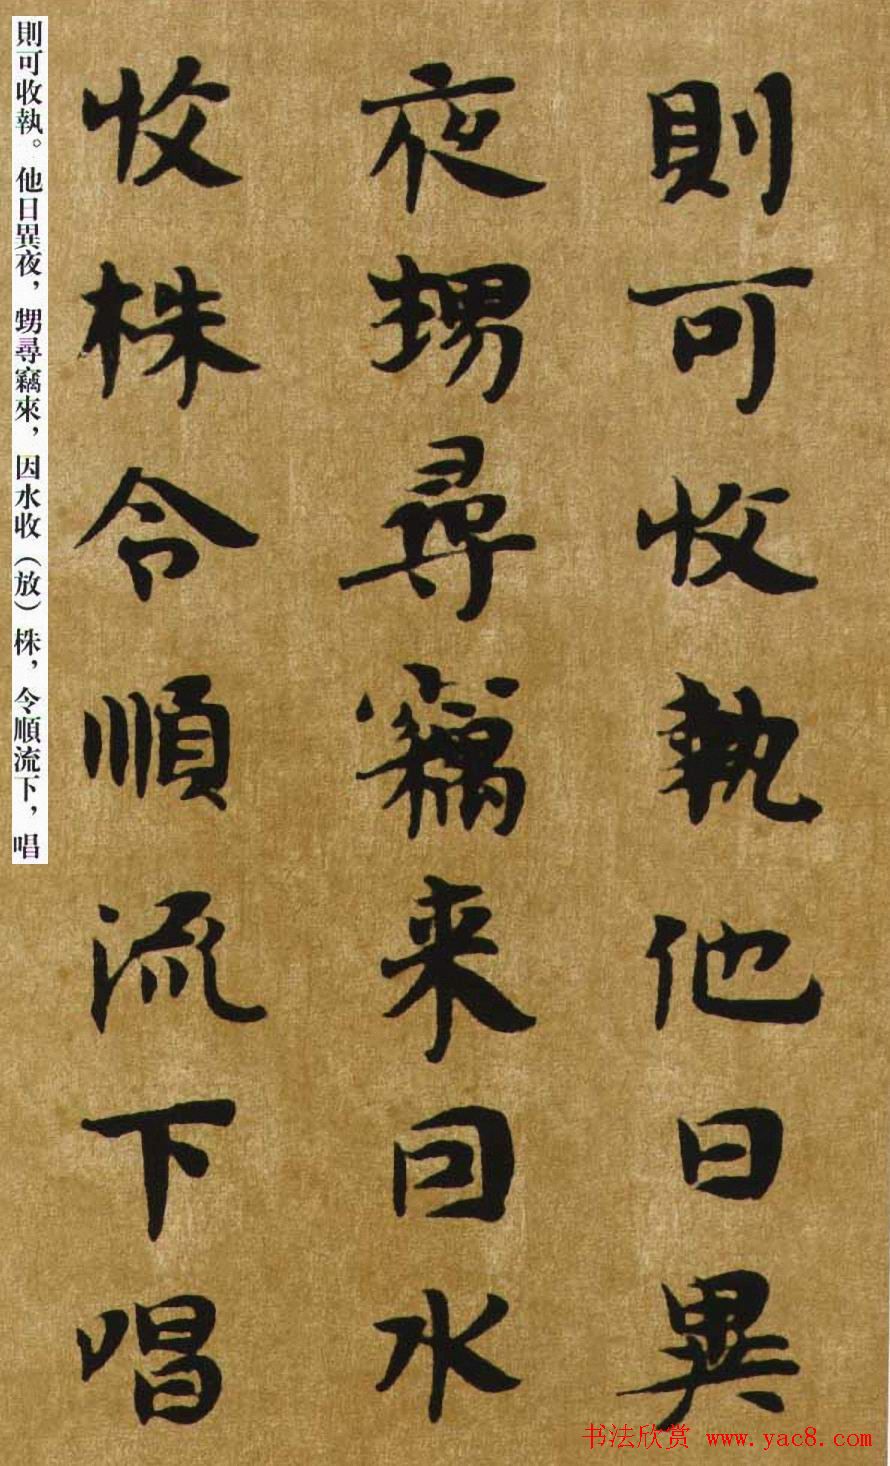 則可收執他日異
夜甥尋竊来回水
收株令順流下唱
則可收執。他日異夜，甥尋竊來，因水收（放）株，令順流下，唱
书法欣赏 www.yac8.com